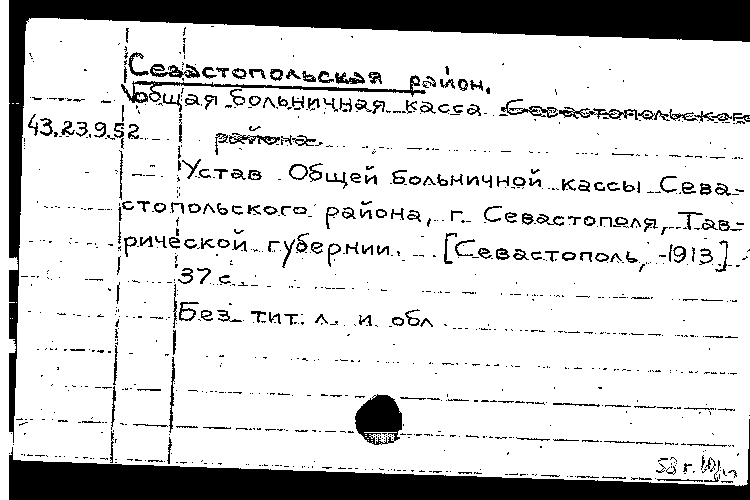 Севастопольская район.
Vобщая больничная касса ~~Севастопольского~~
43.23.9.52 ~~района.~~
Устав Общей больничной кассы Сева-
стопольского района, г. Севастополя, Тав-
рической губернии. [Севастополь, 1913].
37 с.
Без тит. л. и обл.
53 г.